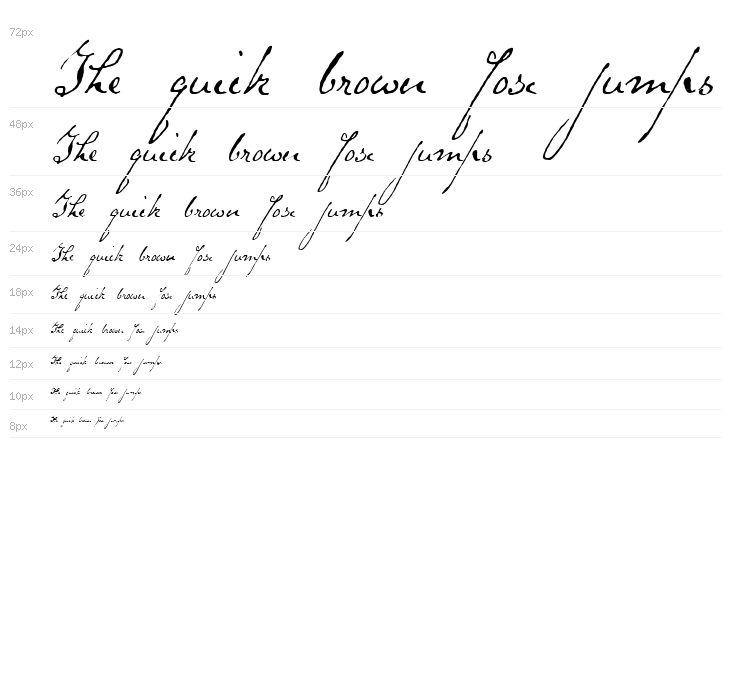 72px
The quick brown fox jumps
48px
The quick brown fox jumps
36px
The quick brown fox jumps
24px
The quick brown fox jumps
18px
The quick brown fox jumps
14px
The quick brown fox jumps
12px
The quick brown fox jumps
10px
The quick brown fox jumps
8px
The quick brown fox jumps